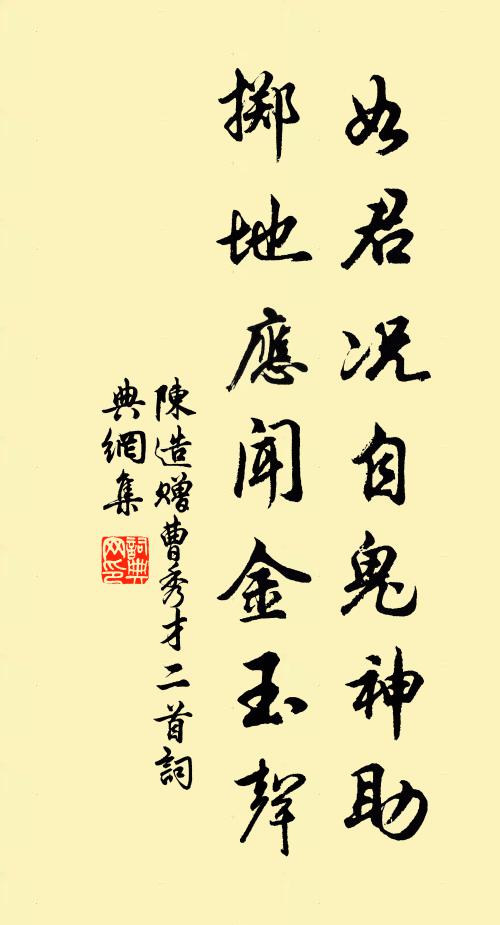 如君况自鬼神助
掷地應闻金玉聲
陳造赠曹秀才二首詞
典網集
詞典网印